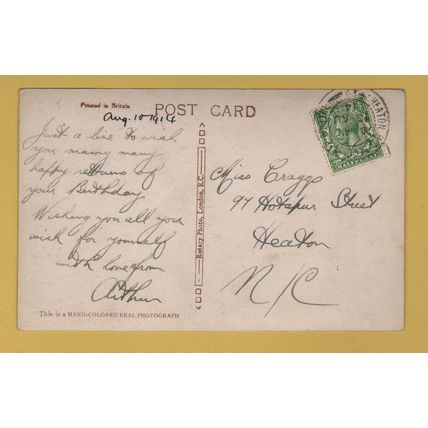 Printed in Britain.
POST CARD
Aug. 10 1914
Just a line to wish
you many many
happy returns of
your Birthday
Wishing you all you
wish for yourself
with love from
Arthur
This is a HAND-COLORED REAL PHOTOGRAPH
Rotary Photo, London, E.C.
Miss Cragge
97 Hotspur Street
Heaton
N/C
HEATON
HALFPENNY